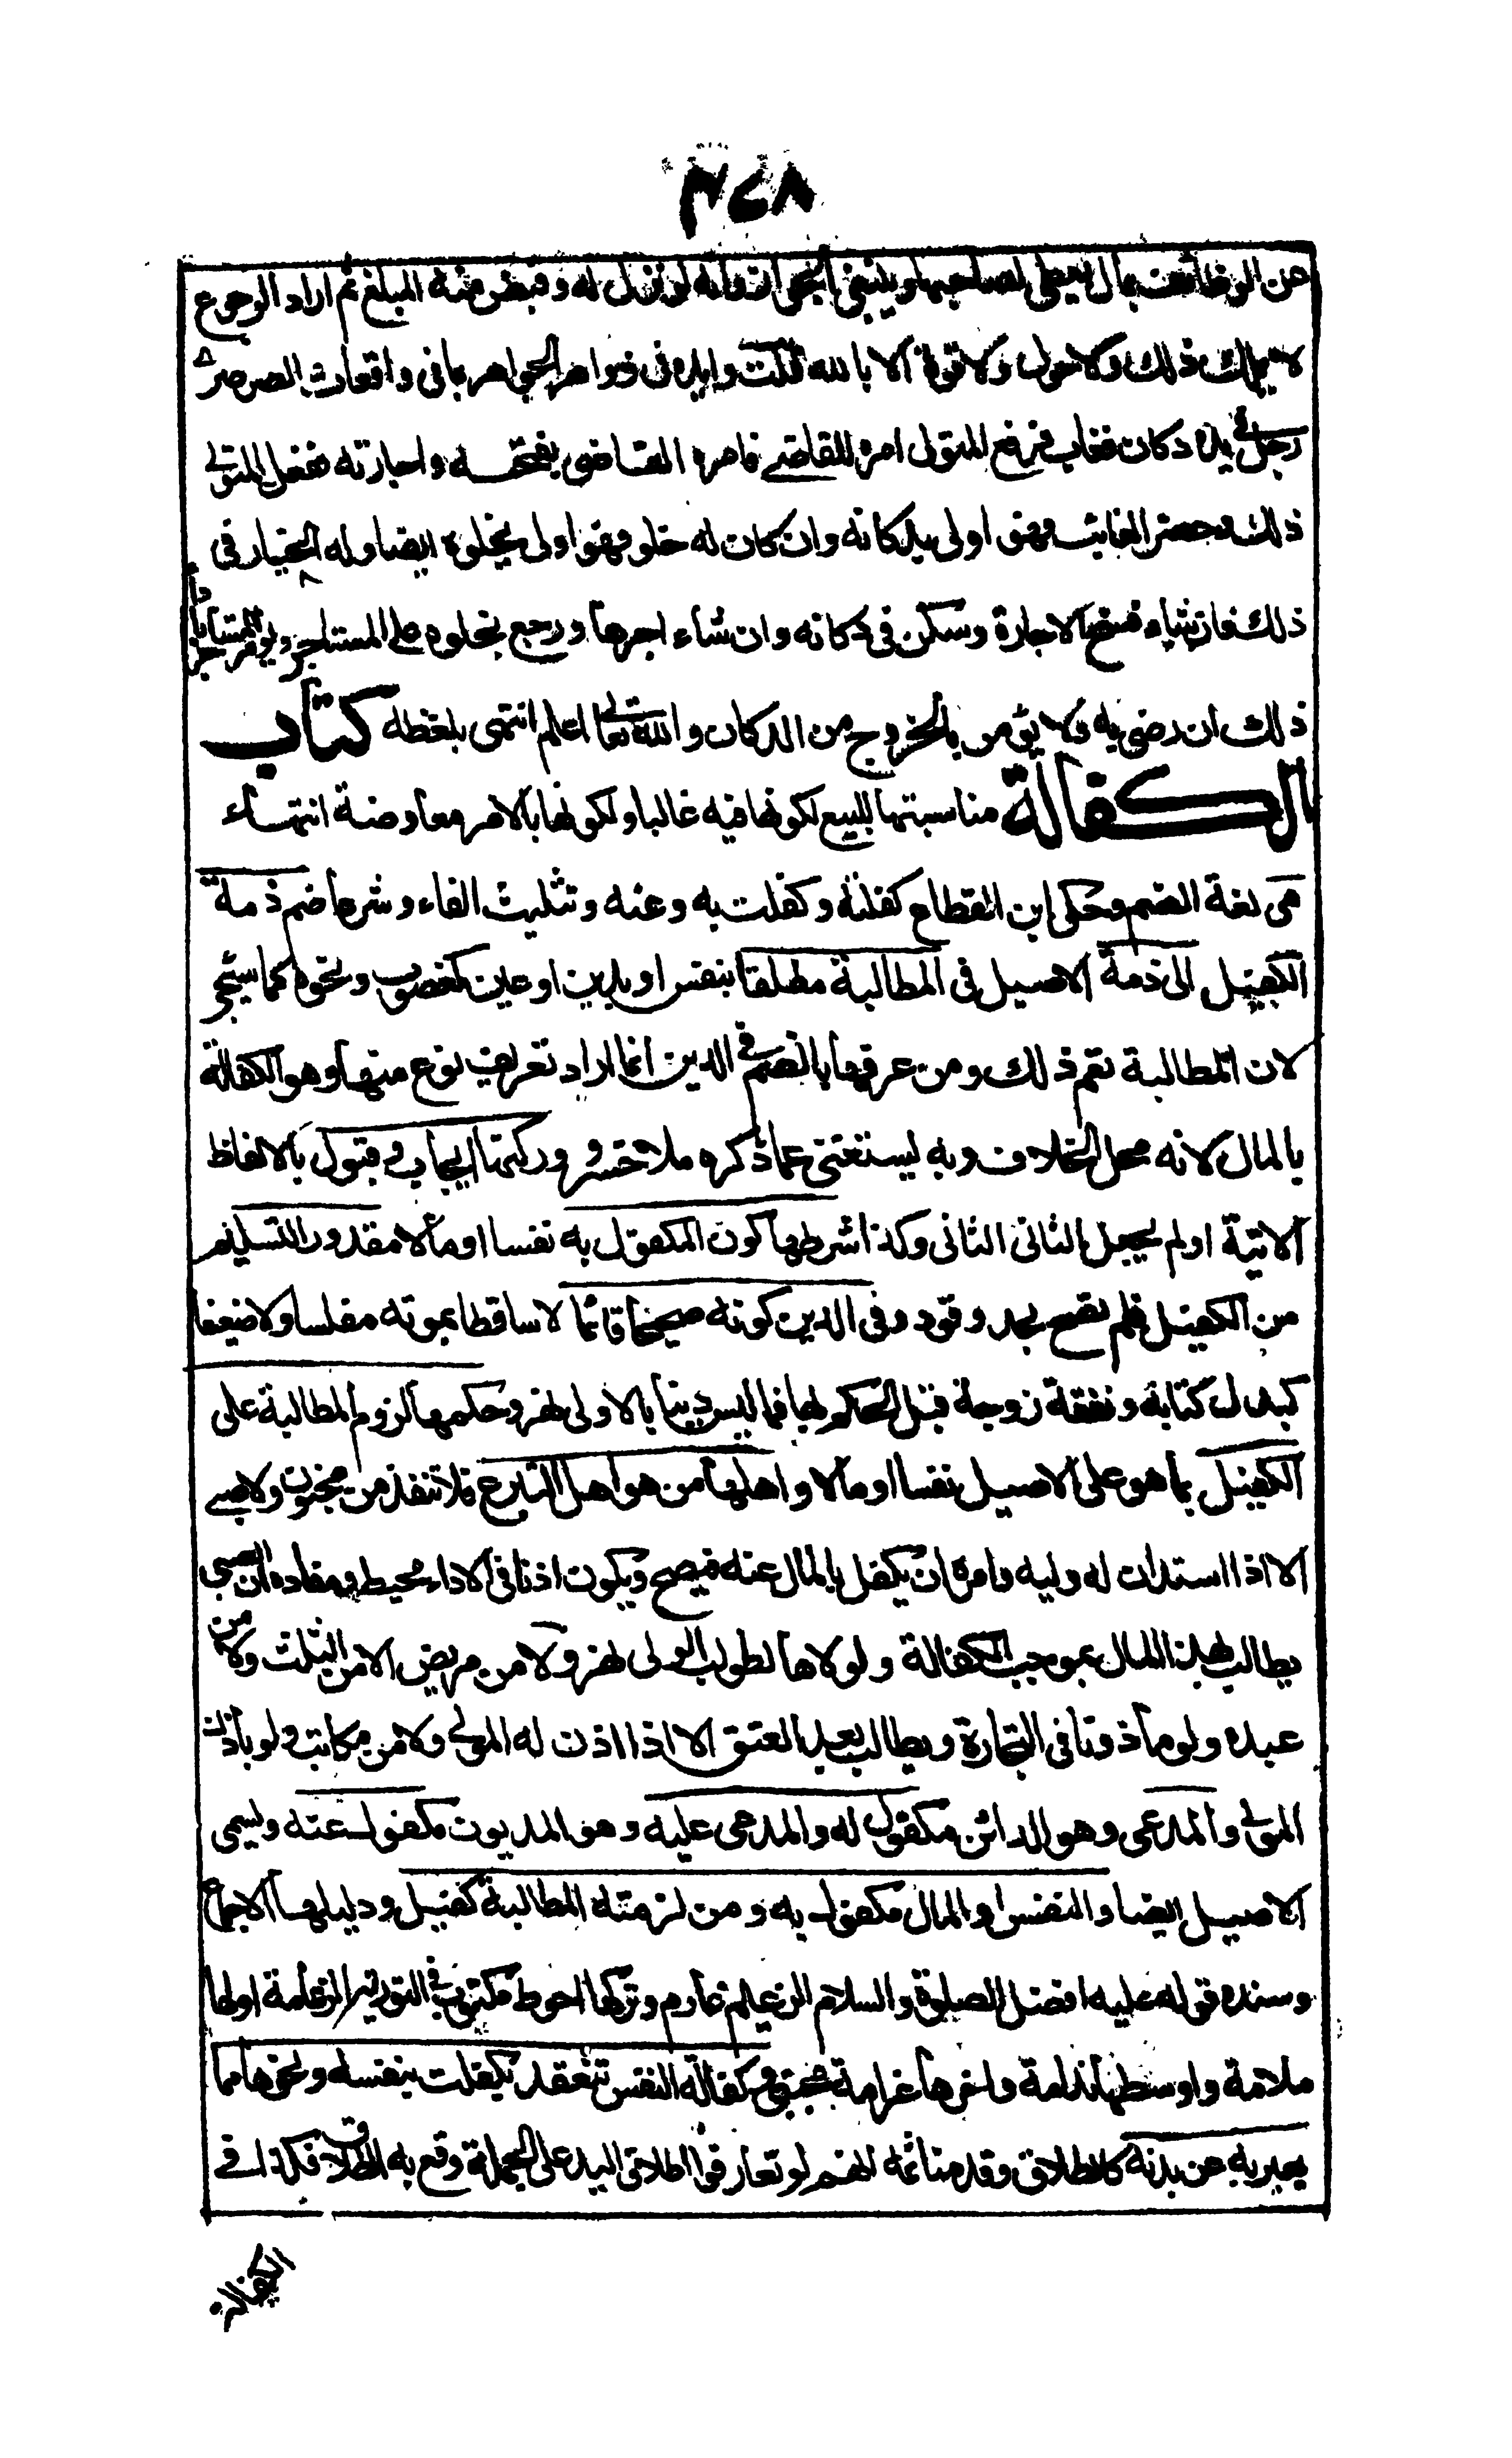 ٣٤٨
عن الوظائف بمال يعطى لصاحبها وينبغي الجواز وانه لو نزل له وقبض منه المبلغ ثم اراد الرجوع
لا يملك ذلك ولا حول ولا قوة الا بالله قلت وايده في زواهر الجواهر بما في واقعات الضريرى
رجل في يده دكان فغاب فرفع المتولى امره للقاضى فامره القاضى بفتحه واجارته ففعل المتولى
ذلك وحضر الغائب فهو اولى بدكانه وان كان له خلو فهو اولى بخلوه ايضا وله الخيار في
ذلك فان شاء فسخ الاجارة وسكن في دكانه وان شاء اجرها ورجع بخلوه على المستاجر ويؤمر المستاجر باداء
ذلك ان رضى به ولا يؤمر بالخروج من الدكان والله تعالى اعلم انتهى بلفظه كتاب
الكفالة مناسبتها للبيع لكونها فيه غالبا ولكونها بالامر معاوضة انتهاء
هى لغة الضم وحكى ابن القطاع كفلته وكفلت به وعنه وتثليث الفاء وشرعا ضم ذمة
الكفيل الى ذمة الاصيل في المطالبة مطلقا بنفس او بدين او عين كمغصوب ونحوه كما سيجى
لان المطالبة تعم ذلك ومن عرفها بالضم في الدين انما اراد تعريف نوع منها وهو الكفالة
بالمال لانه محل الخلاف وبه يستغنى عما ذكره ملا خسرو وركنها ايجاب وقبول بالالفاظ
الاتية اولم يجعل الثانى الثانى وكذا شرطها كون المكفول به نفسا او مالا مقدور التسليم
من الكفيل فلم يصح بحد وقود وفي الدين كونه صحيحا قائما لا ساقطا بموته مفلسا ولا ضعيفا
كبدل كتابة ونفقة زوجة قبل الحكم بها فما ليس دينا بالاولى نهر وحكمها لزوم المطالبة على
الكفيل بما هو على الاصيل نفسا او مالا واهلها من هو اهل التبرع فلا تنفذ من مجنون ولا صبى
الا اذا استدان له وليه وامره ان يكفل بالمال عنه فيصح ويكون اذنا في الاداء محيط ومفاده ان الصبى
يطالب بهذا المال بموجب الكفالة ولولاها لطولب الولى نهر ولا من مريض الا من الثلث ولا من
عبده ولو ماذونا في التجارة ويطالب بعد العتق الا اذا اذن له المولى ولا من مكاتب ولو باذن
المولى والمدعى وهو الدائن مكفول له والمدعى عليه وهو المديون مكفول عنه ويسمى
الاصيل ايضا والنفس او المال مكفول به ومن لزمته المطالبة كفيل ودليلها الاجماع
وسنده قوله عليه افضل الصلوة والسلام الزعيم غارم وتركها احوط مكتوب في التورية الزعامة اولها
ملامة واوسطها ندامة واخرها غرامة مجتبى وكفالة النفس تنعقد بكفلت بنفسه ونحوها مما
يعبر به عن بدنه كالطلاق وقدمنا ثمه انهم لو تعارفوا اطلاق اليد على الجملة وقع به الطلاق فكذا في
الكفالة